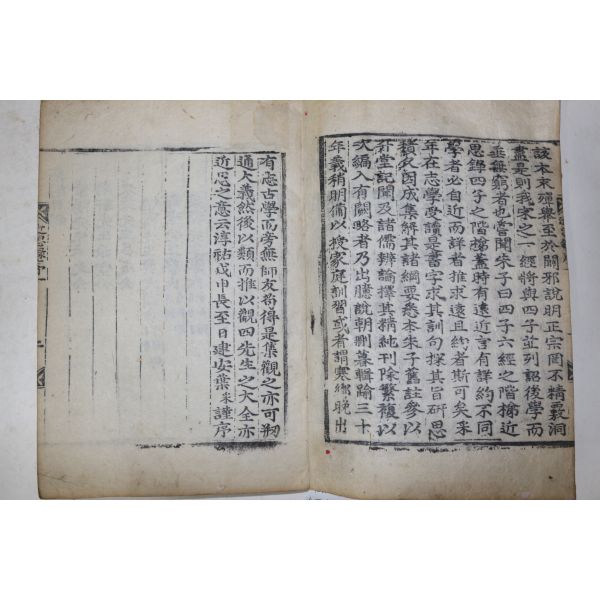 該本末殫舉至於闢邪說明正宗罔不精覈洞
盡是則我宋之一經將與四子並列詔後學而
垂無窮者也嘗聞朱子曰四子六經之階梯近
思錄四子之階梯蓋時有遠近言有詳約不同
學者必自近而詳者推求遠且約者斯可矣采
年在志學受讀是書字求其訓句探其旨研思
積久因成集解其諸綱要悉本朱子舊註參以
升堂記聞及諸儒辯論擇其精純刊除繁複以
次編入有闕略者乃出臆說朝刪暮輯踰三十
年義稍明備以授家庭訓習或者謂寒鄉晚出
有志古學而旁無師友苟得是集觀之亦可刱
通大義然後以類而推以觀四先生之大全亦
近思之意云淳祐戊申長至日建安葉采謹序